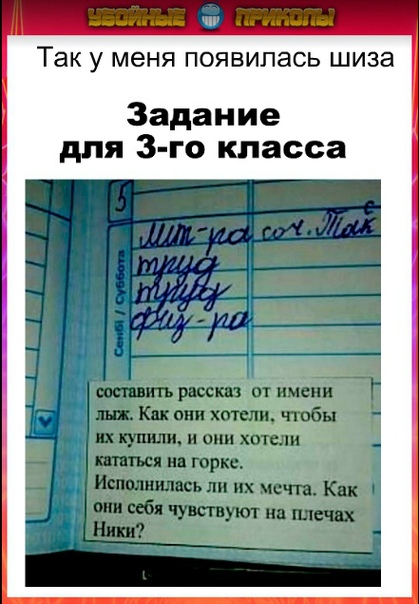 УБОЙНЫЕ ПРИКОЛЫ
Так у меня появилась шиза
Задание
для 3-го класса
5
Сенбі / Суббота
Лит-ра соч. Так
труд
труд
физ-ра
составить рассказ от имени
лыж. Как они хотели, чтобы
их купили, и они хотели
кататься на горке.
Исполнилась ли их мечта. Как
они себя чувствуют на плечах
Ники?